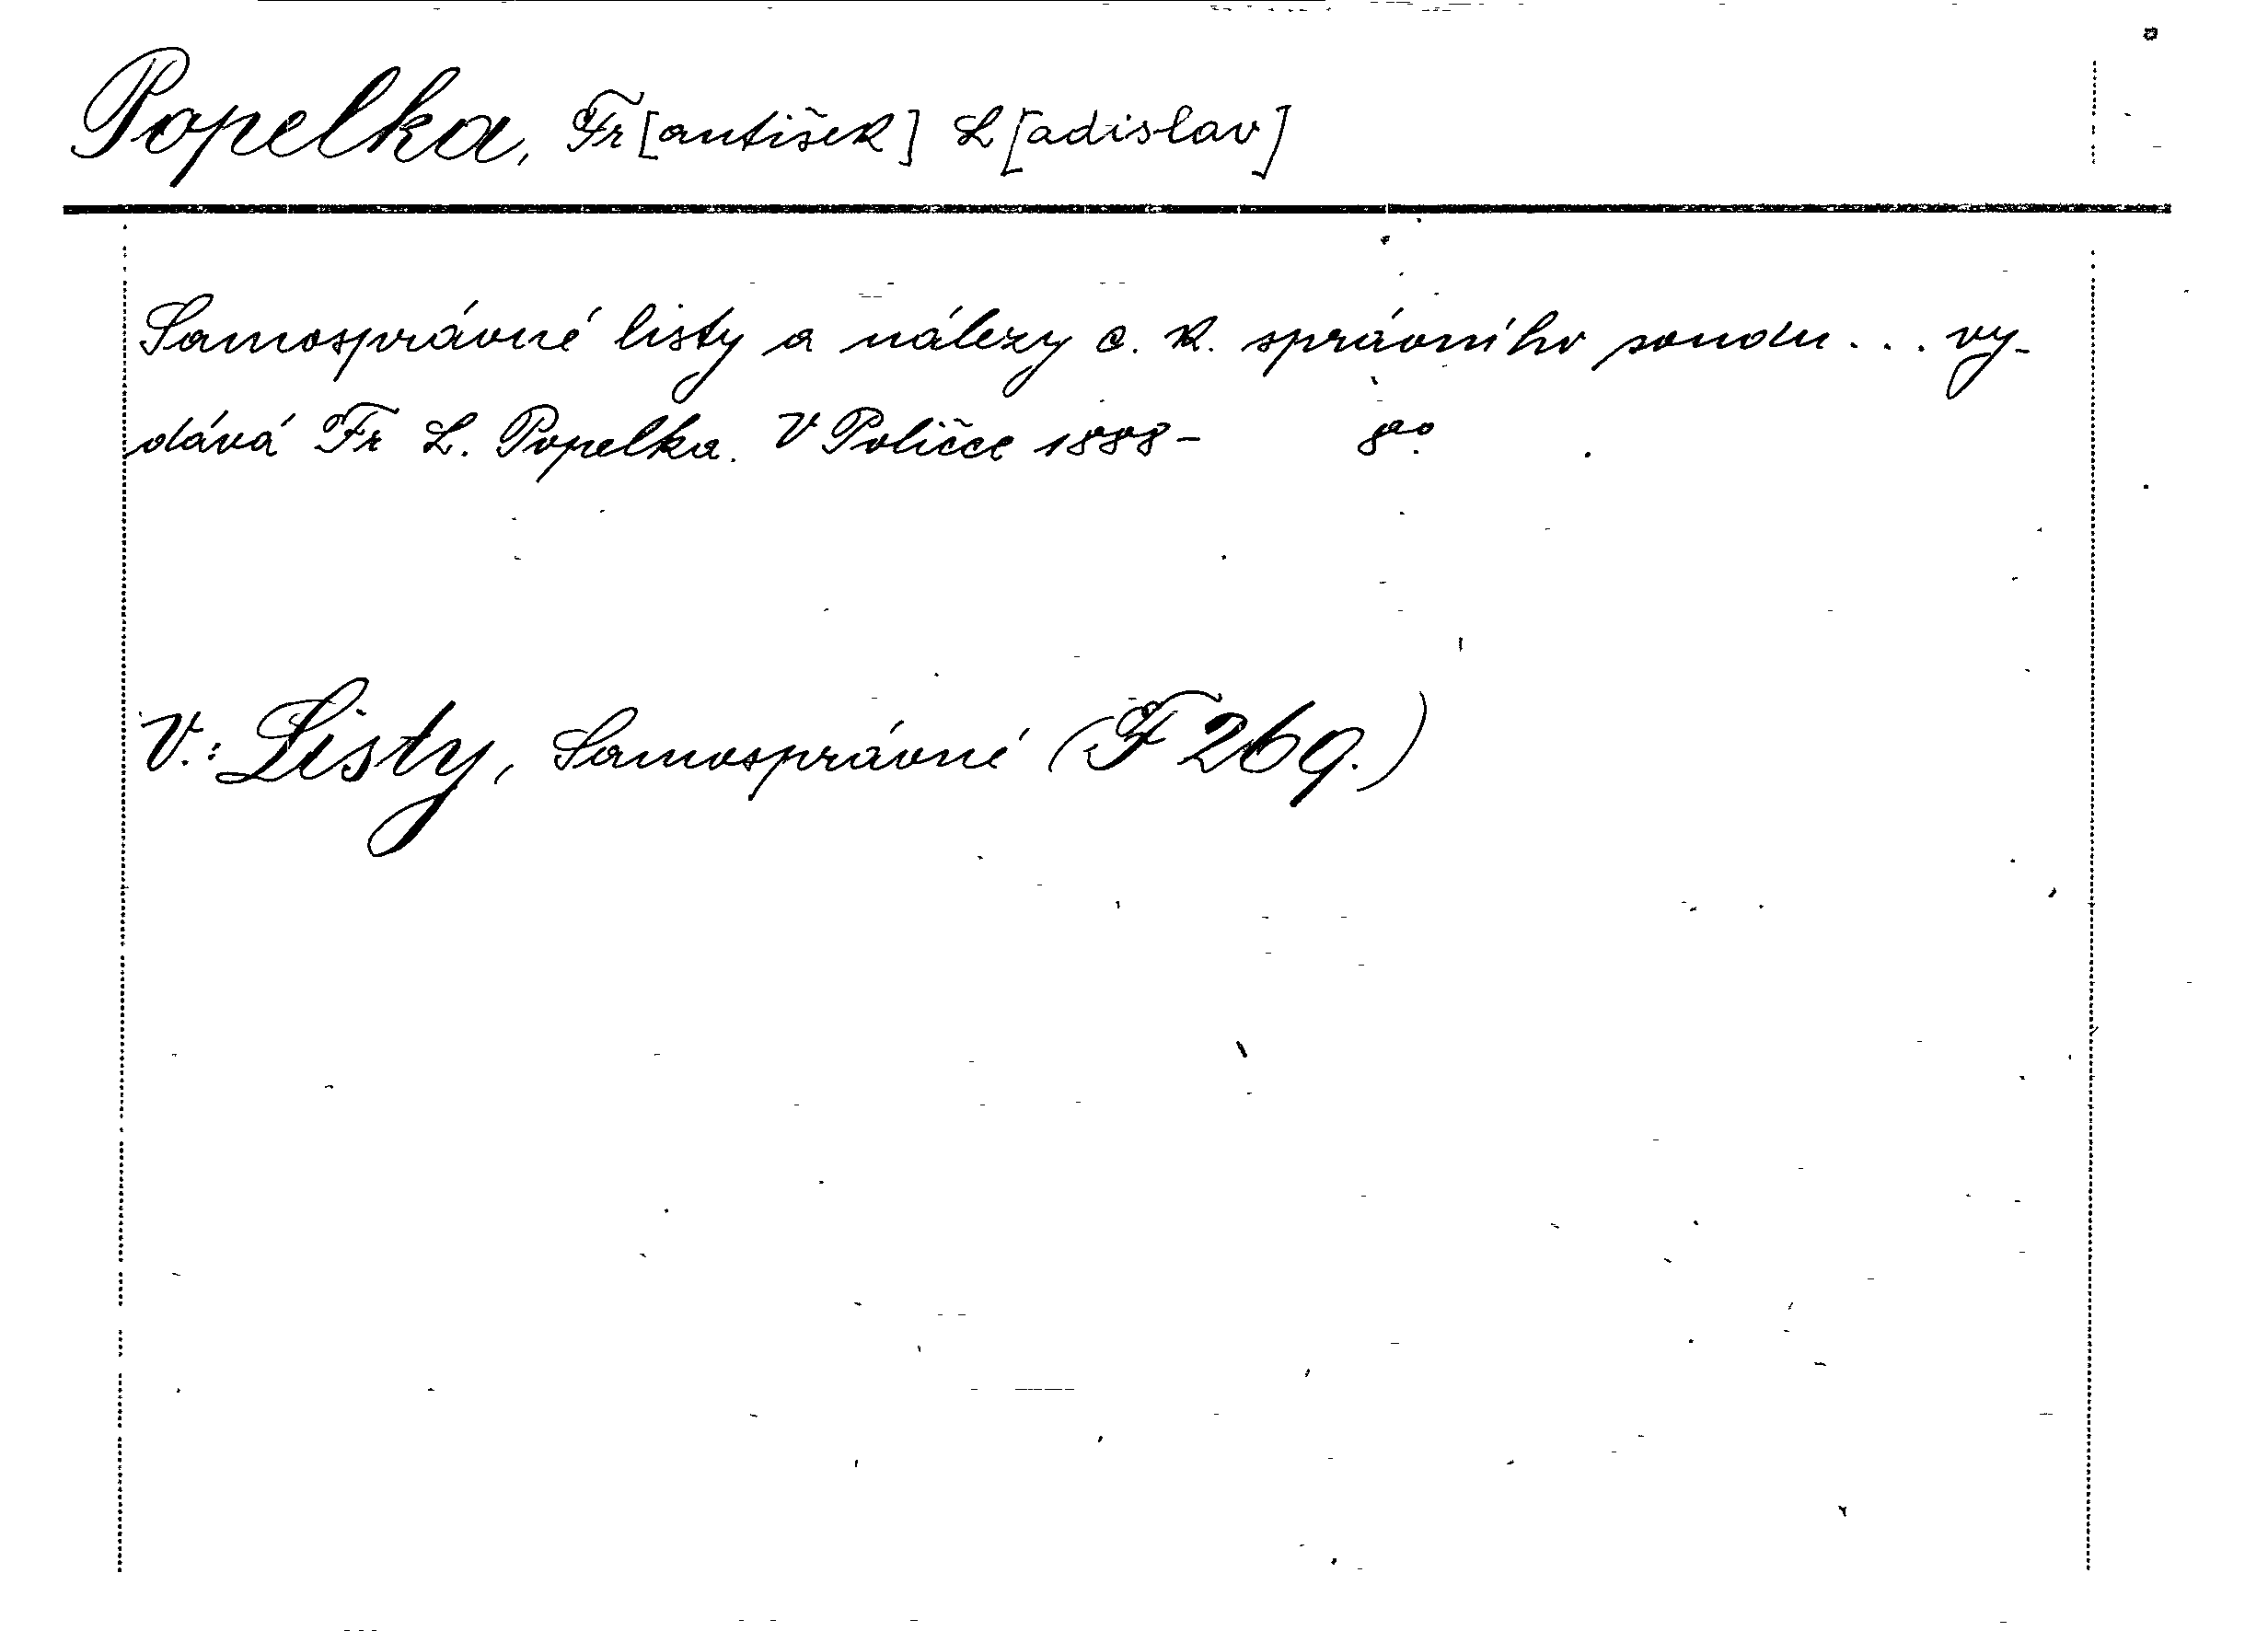 Popelka, Fr[antišek] L[adislav]
Samosprávné listy a nálezy c. k. správního soudu... vy-
dává Fr L. Popelka. V Poličce 1888- 8o.
V.: Listy, Samosprávné (F 269.)